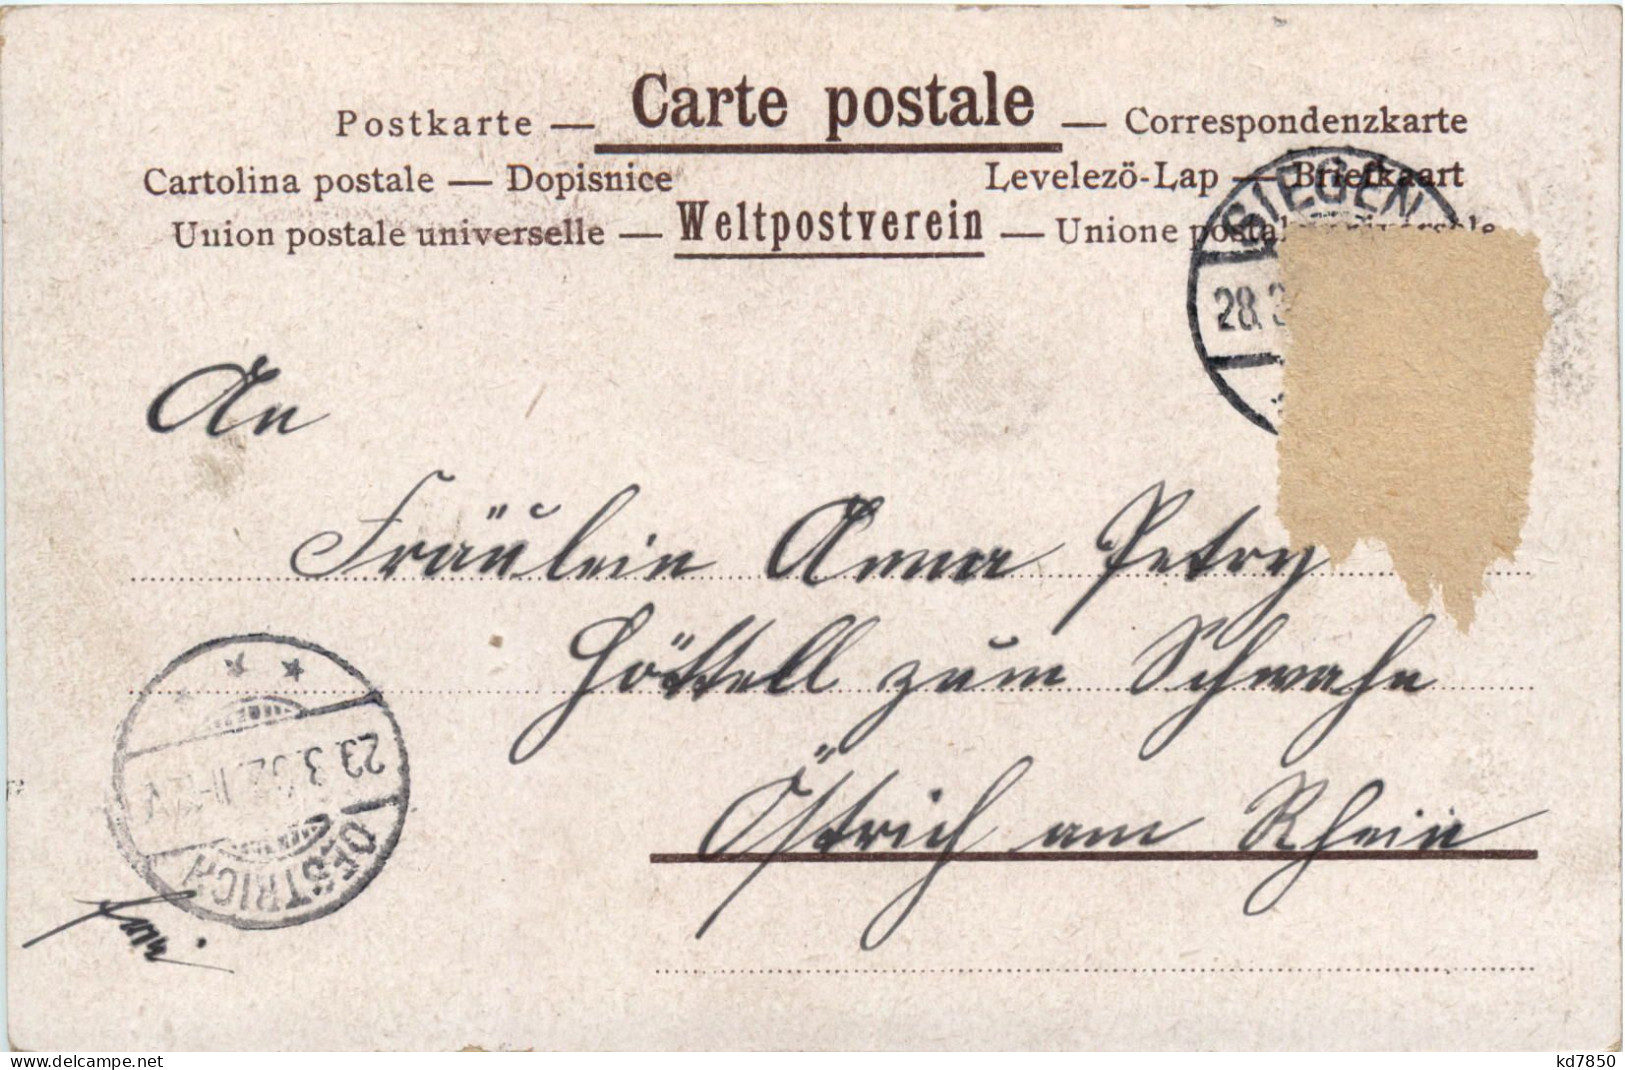 Carte postale
Postkarte — — Correspondenzkarte
Cartolina postale — Dopisnice Levelezö-Lap — Briefkaart
Union postale universelle — Weltpostverein — Unione postale universale
SIEGEN
28.3
An
Fräulein Anna Petry
Höttell zum Schwahn
Östrich am Rhein
29.3.02
OESTRICH
www.delcampe.net
kd7850